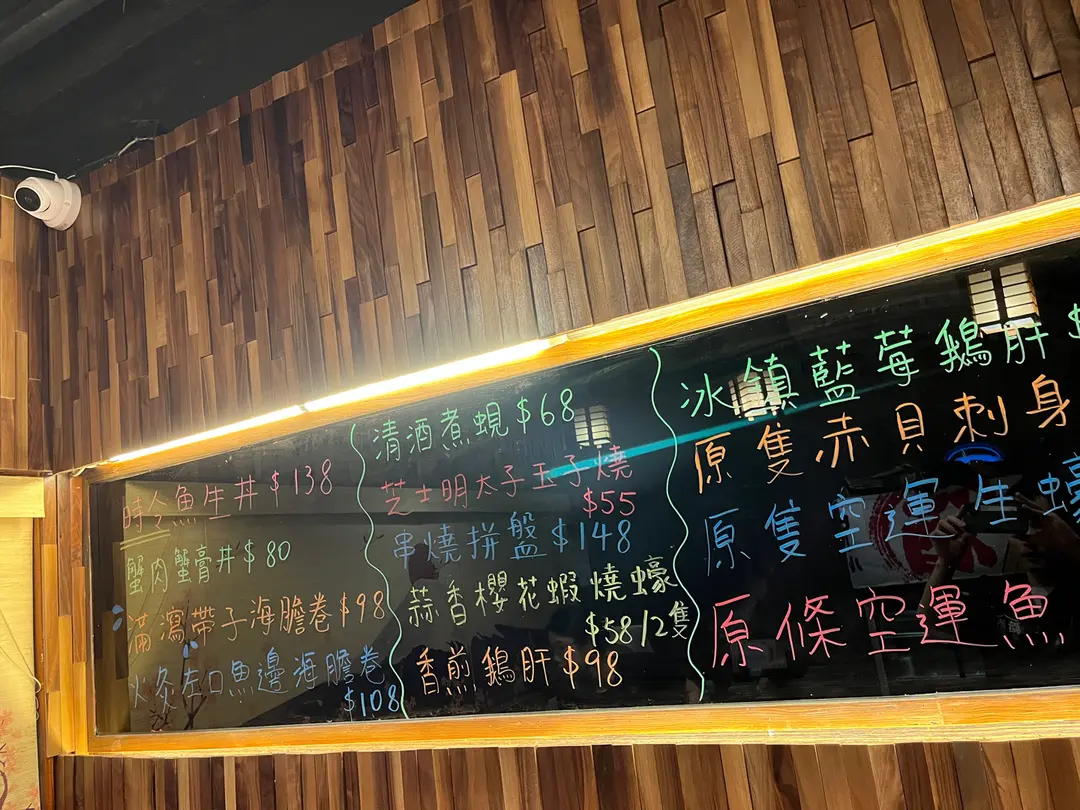 時令魚生丼 $138
蟹肉蟹膏丼 $80
滿瀉帶子海膽卷 $98
火灸左口魚邊海膽卷
$108
清酒煮蜆 $68
芝士明太子玉子燒
$55
串燒拼盤 $148
蒜香櫻花蝦燒蠔
$58/2隻
香煎鵝肝 $98
冰鎮藍莓鵝肝 $
原隻赤貝刺身
原隻空運生蠔
原條空運魚